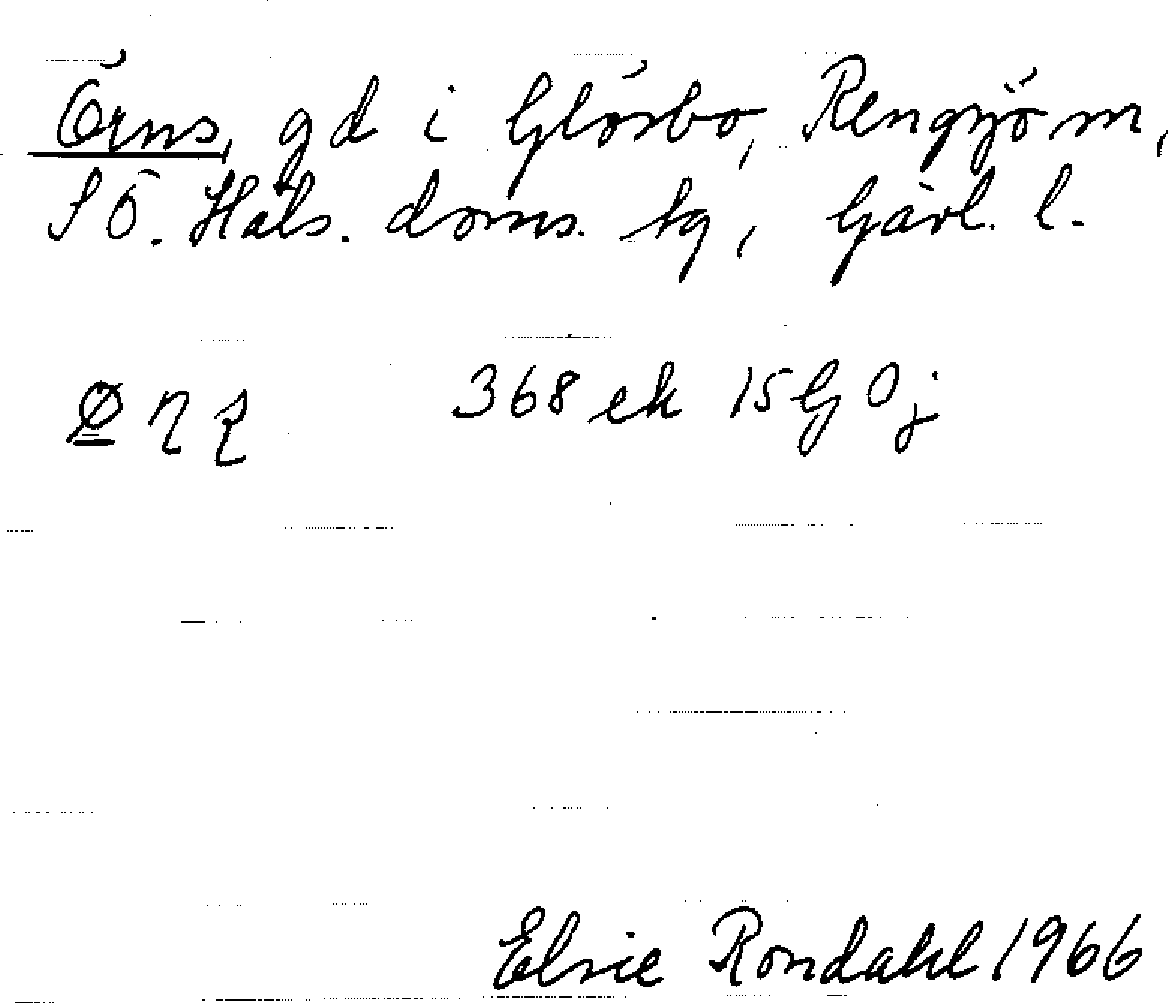 Örns, gd i Glösbo, Rengsjö sn,
SÖ. Häls. doms. hg, Gävl. l.
368 ek 15G 0j
Elsie Rondahl 1966